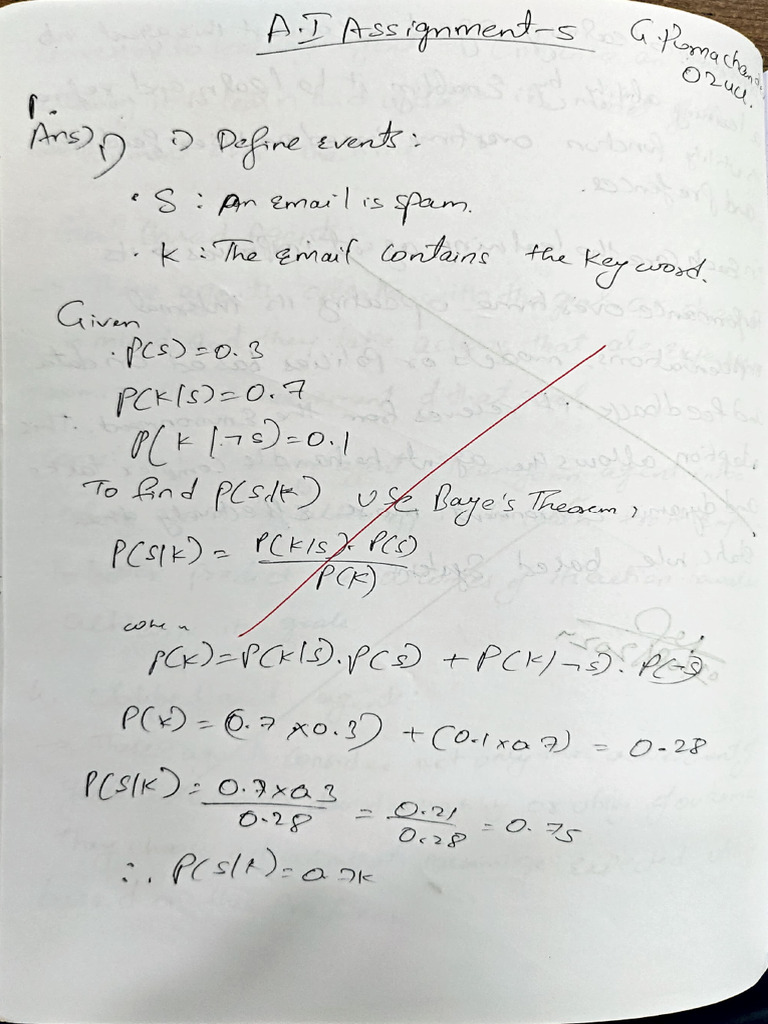 A.I Assignment-5
0244.
1.
Ans) 1) i) Define events:
• S : An Email is spam.
• K : The Email contains the key word.
Given
P(S) = 0.3
P(K|S) = 0.7
P(K|¬S) = 0.1
To find P(S|K) use Baye's Theorem,
P(S|K) = P(K|S). P(S) / P(K)
P(K) = P(K|S). P(S) + P(K|¬S). P(¬S)
P(K) = (0.7 × 0.3) + (0.1 × 0.7) = 0.28
P(S|K) = 0.7 × 0.3 / 0.28 = 0.21 / 0.28 = 0.75
∴ P(S|K) =